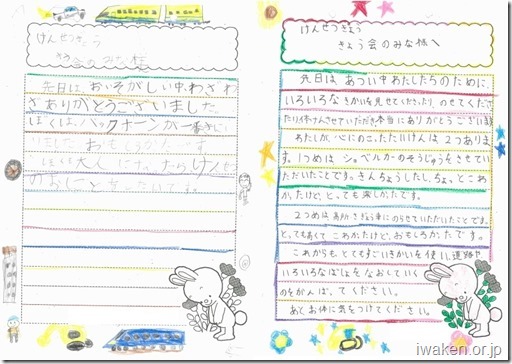 けんせつきょう
協会のみな様
先日は、おいそがしい中、わざわ
ざありがとうございました。
ぼくは、バックホーンが一番楽し
かったです。おもしろかったです。
ぼくも大人になったらけんせつ
のおしごとを
けんせつきょう
きょう会のみな様へ
先日は、あつい中、わたしたちのために、
いろいろなきかいを見せてくださったり、のせてくださ
ったり、体けんさせていただき、本当にありがとうございます。
わたしが心にのこったたいけんは2つありま
す。1つめは、ショベルカーのそうじゅうをさせてい
ただいたことです。きんちょうしたし、ちょっとこわ
かったけど、とっても楽しかったです。
2つめは、高所さぎょう車にのらせていただいたことです。
とっても高くて、こわかったけど、おもしろかったです。
これからも、とてもすごいきかいを使い、道路や
いろいろなばしょをなおしていく
のをがんばってください。
あと、お体に気をつけてください。
iwaken.or.jp